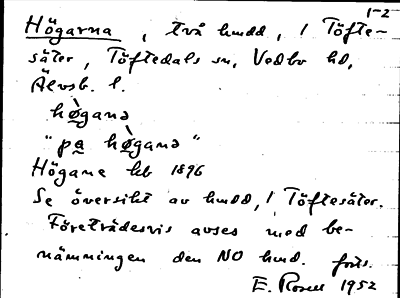 1-2
Högarna, två hmdd, i Töfte-
säter, Töftedals sn, Vedbo hd,
Älvsb. l.
hø̀gana
"pa hø̀gana"
Högane kb 1896
Se översikt av hmdd, i Töftesäter.
Företrädesvis avses med be-
nämningen den NO hmd. forts.
E. Rosell 1952